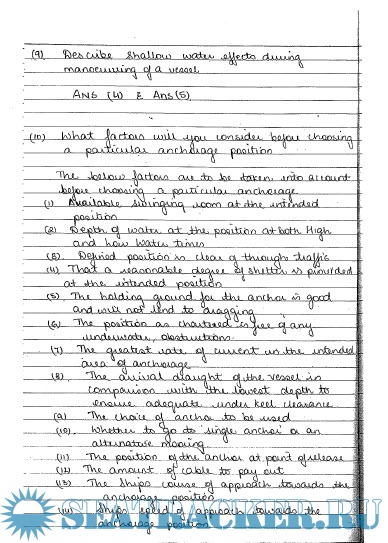 (9) Describe shallow water effects during
manoeuvring of a vessel
ANS (4) & Ans (5)
(10) What factors will you consider before choosing
a particular anchorage position
The below factors are to be taken into account
before choosing a particular anchorage
(1) Available swinging room at the intended
position
(2) Depth of water at the position at both High
and how water times
(3) Defined position is clear of through traffic
(4) That a reasonable degree of shelter is provided
at the intended position
(5) The holding ground for the anchor is good
and will not lend to dragging
(6) The position as chartered is free of any
underwater obstructions
(7) The greatest rate of current in the intended
area of anchorage
(8) The arrival draught of the vessel in
comparison with the lowest depth to
ensure adequate under keel clearance
(9) The choice of anchor to be used
(10) Whether to go to 'single anchor' or an
alternative mooring
(11) The position of the anchor at point of release
(12) The amount of cable to pay out
(13) The ships course of approach towards the
anchorage position
(14) Ships speed of approach towards the
anchorage position
SEATRACKER.RU